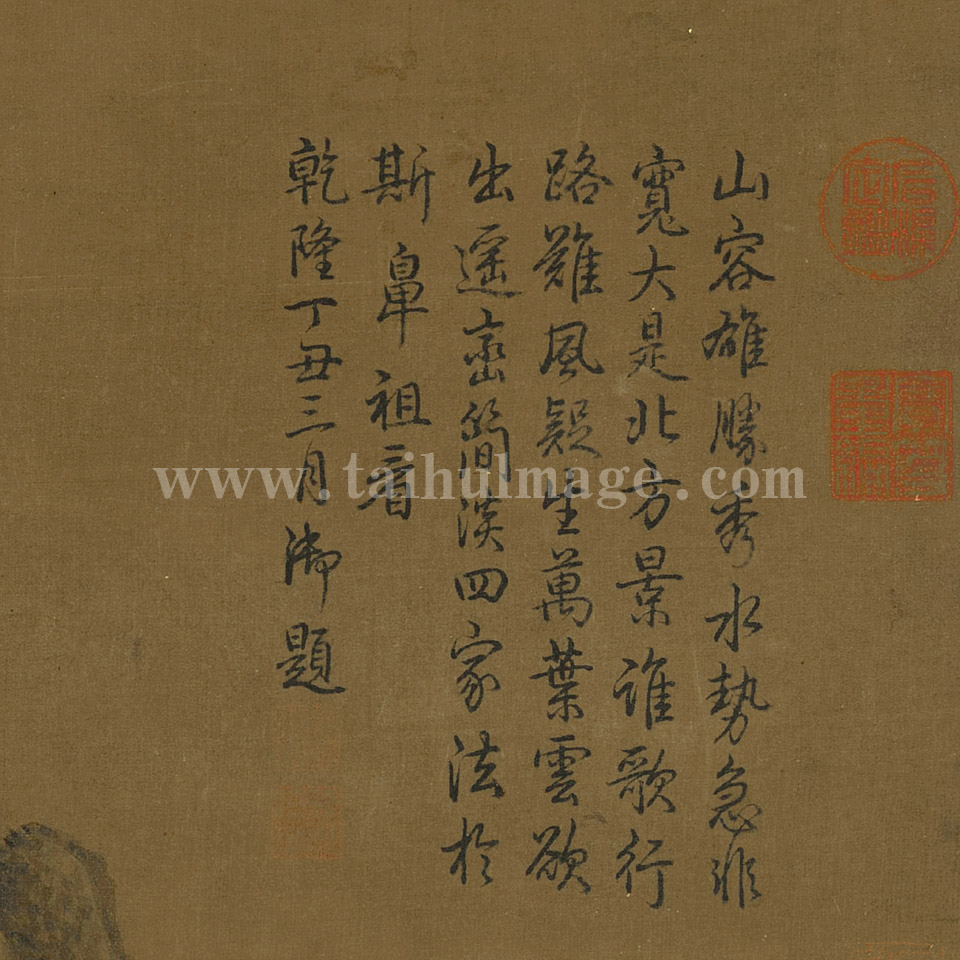 山容雄勝秀水勢急非
寬大是北方景誰歌行
路難風疑生萬葉雲欲
出遥巒簡淡四家法於
斯鼻祖看
乾隆丁丑三月御題
www.taihuImage.com